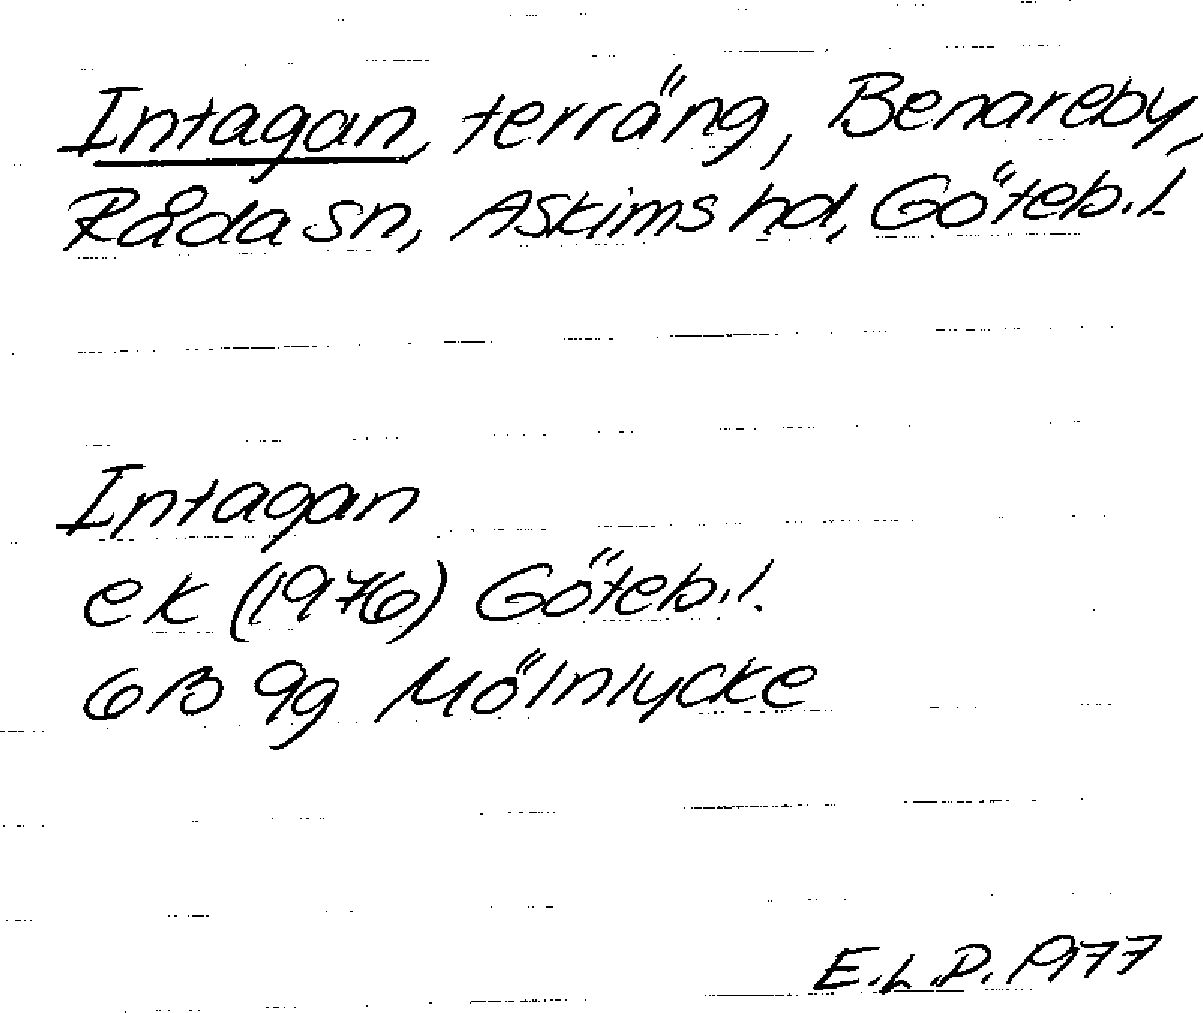 Intagan, terräng, Benareby,
Råda sn, Askims hd, Göteb.l.
Intagan
ek (1976) Göteb.l.
6B 9g Mölnlycke
E.L.P. 1977